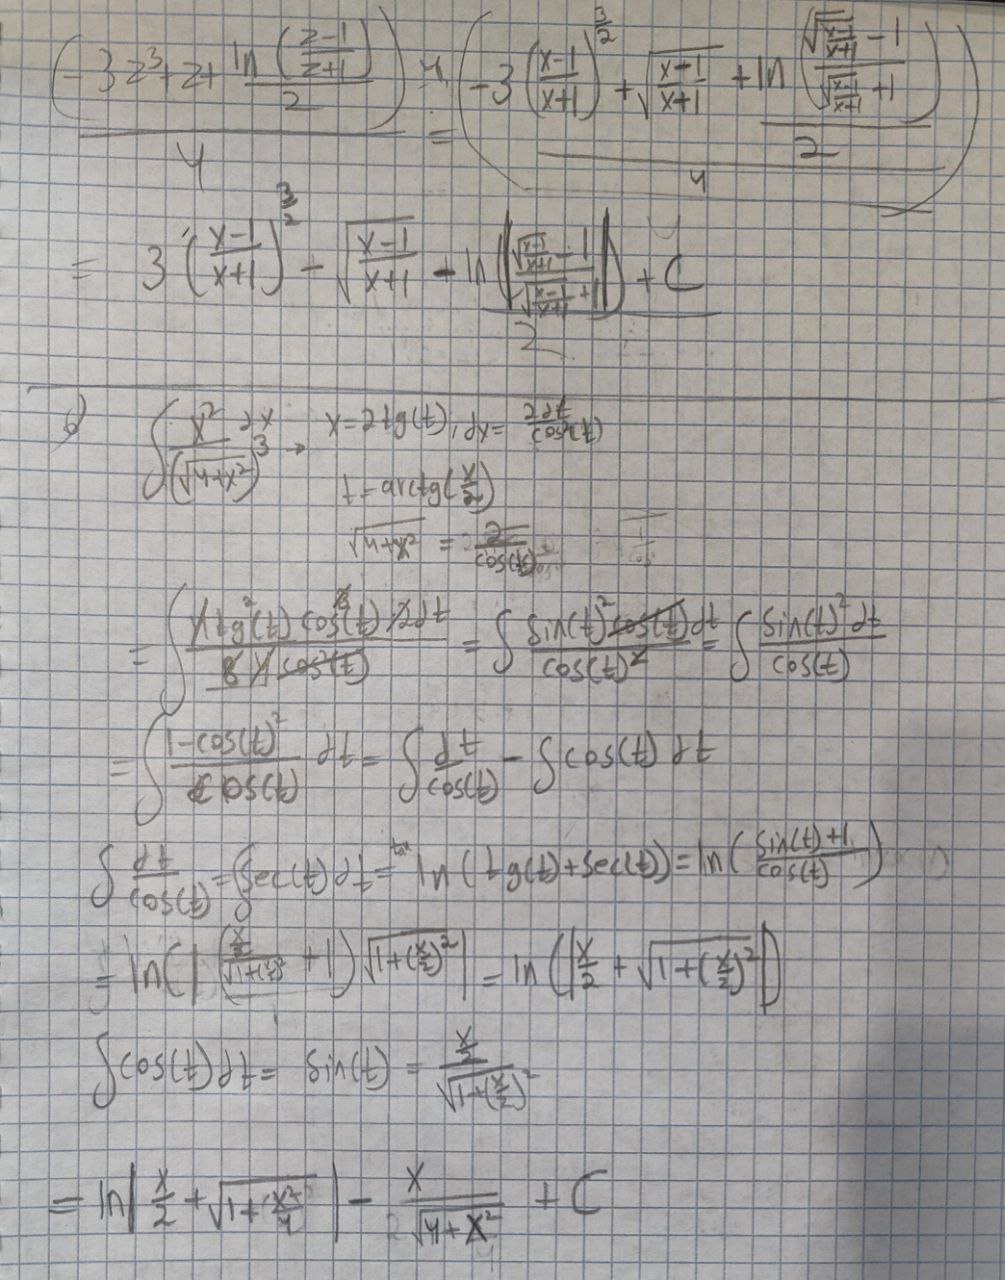 (-3z³+z+ ln((z-1)/(z+1))/2)/4 · 4 = (-3((x-1)/(x+1))^(3/2) + √((x-1)/(x+1)) + ln((√((x-1)/(x+1)) -1)/(√((x-1)/(x+1)) +1))/2)/4
= 3((x-1)/(x+1))^(3/2) - √((x-1)/(x+1)) - ln(|(√((x-1)/(x+1)) -1)/(√((x-1)/(x+1)) +1)|)/2 + C
∫ x² dx/(√(4+x²))³ → x=2tg(t), dx= 2dt/cos²(t)
t=arctg(x/2)
√(4+x²) = 2/cos(t)
= ∫ 4tg²(t) cos³(t) 2dt/(8 cos²(t)) = ∫ sin(t)² cos(t)dt/cos(t)² = ∫ sin(t)² dt/cos(t)
= ∫ (1-cos(t)²)/cos(t) dt = ∫ dt/cos(t) - ∫ cos(t) dt
∫ dt/cos(t) = ∫ sec(t) dt = ln(tg(t)+sec(t)) = ln((sin(t)+1)/cos(t))
= ln(|((x/2)/√(1+(x/2)²) +1) √(1+(x/2)²)|) = ln(|x/2 + √(1+(x/2)²)|)
∫ cos(t) dt = sin(t) = (x/2)/√(1+(x/2)²)
= ln|x/2 + √(1+x²/4)| - x/√(4+x²) + C